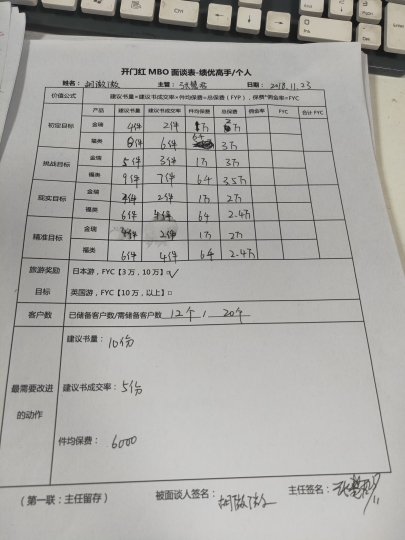 开门红 MBO 面谈表-绩优高手/个人
姓名： 主管： 日期：2018.11.23
价值公式 建议书量*建议书成交率*件均保费=总保费（FYP），保费*佣金率=FYC
产品 建议书量 建议书成交率 件均保费 总保费 佣金率 FYC 合计 FYC
初定目标 金瑞 4件 2件 1万 2万
福类 8件 6件 3万
挑战目标 金瑞 5件 3件 1万 3万
福类 9件 7件 6千 3.5万
现实目标 金瑞 2件 1万 2万
福类 6件 4件 6千 2.4万
精准目标 金瑞 2件 1万 2万
福类 6件 4件 6千 2.4万
旅游奖励 日本游，FYC【3万，10万】☑
目标 英国游，FYC【10万，以上】□
客户数 已储备客户数/需储备客户数 12个 / 20个
最需要改进的动作
建议书量：10份
建议书成交率：5份
件均保费：6000
（第一联：主任留存） 被面谈人签名： 主任签名：